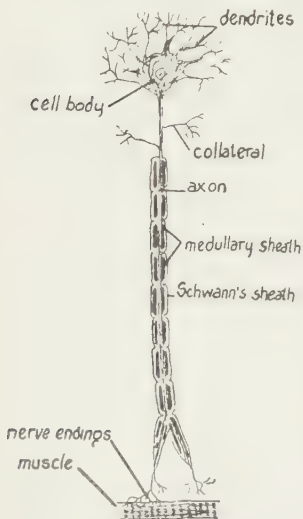 dendrites
cell body
collateral
axon
medullary sheath
Schwann's sheath
nerve endings
muscle